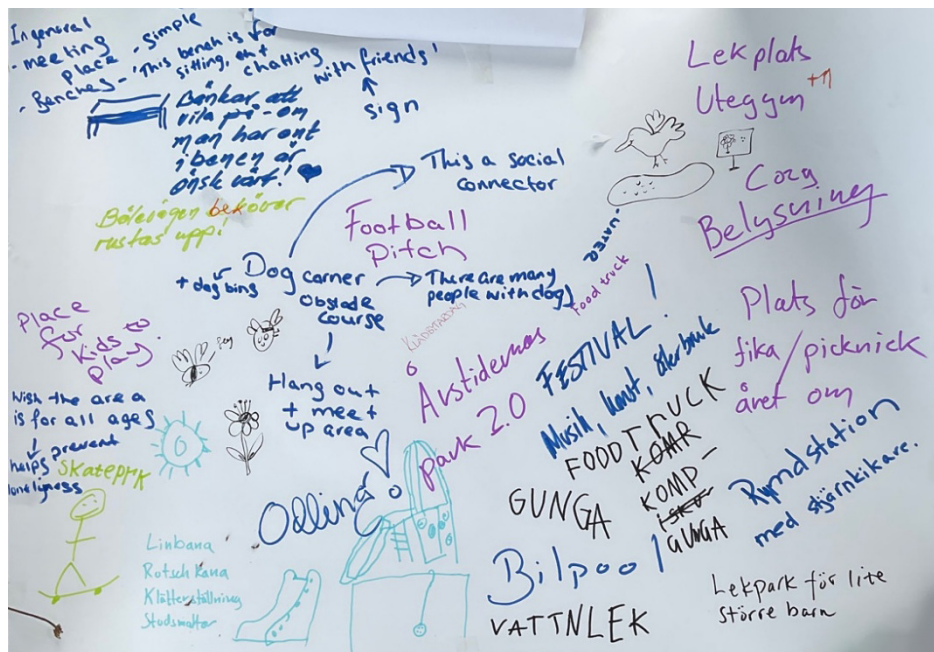 In general
- meeting
place
- Benches -
- simple
"This bench is for
sitting, and
chatting
with friends"
sign
Bänkar att
vila på - om
man har ont
i benen är
önskvärt!
Bölevägen beköver
rustas upp!
This a social
connector
Football
pitch
Dog corner
+ dog bins
obstacle
course
There are many
people with dogs
Hang out
+ meet
up area
Place
for
kids to
play.
Wish the area
is for all ages
helps prevent
lonelyness
Skateprk
Odling
Linbana
Rutsch kana
Klätterställning
Studsmattor
Lekplats
Utegym
+1
Cozy
Belysning
Plats för
fika/picknick
året om
Food truck
Årstidernas
park 2.0
FESTIVAL!
Musik, konst, återbruk
FOODTRUCK
KOMR
KOMP-
GUNGA
GUNGA
Bilpool
VATTNLEK
Rymdstation
med stjärnkikare.
Lekpark för lite
större barn